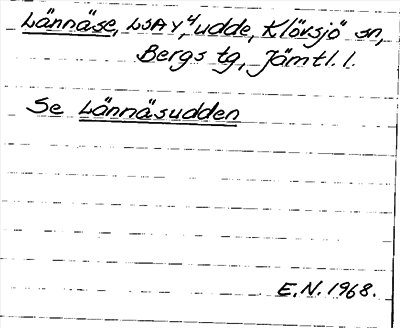 Lännäse, LSAY⁴, udde, Klövsjö sn,
Bergs tg, Jämtl. l.
Se Lännäsudden
E.N. 1968.